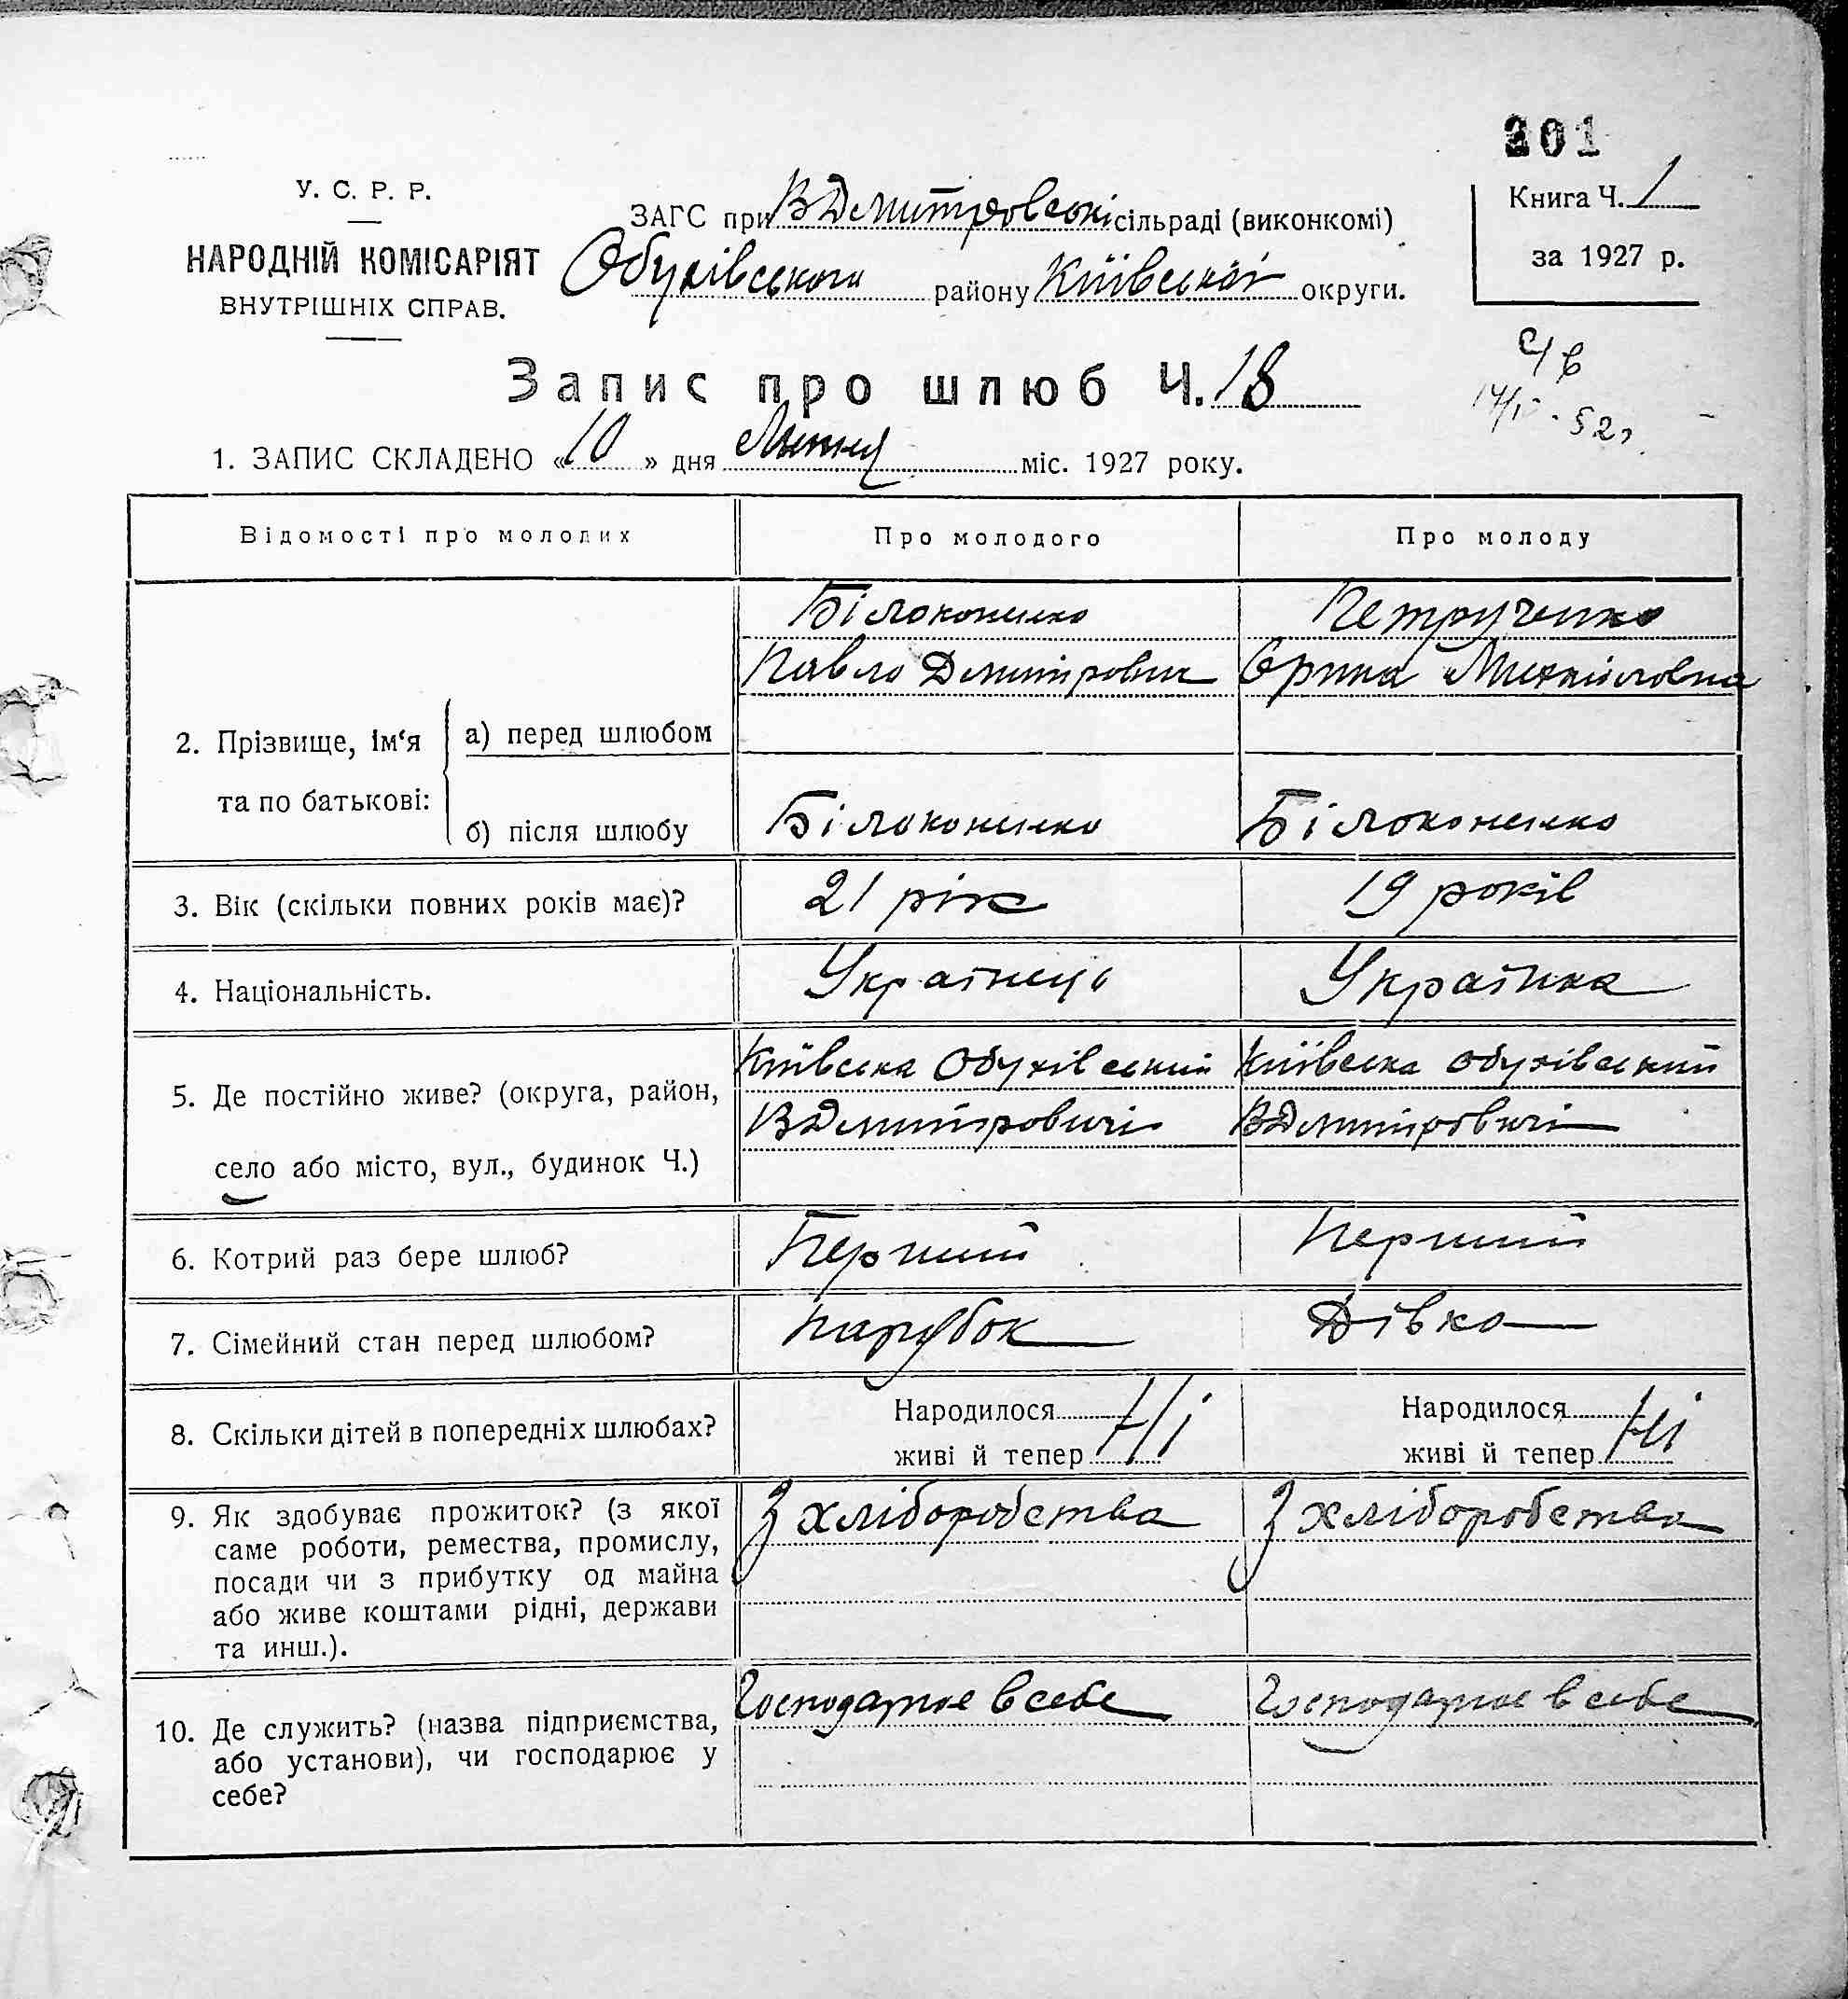 301
У. С. Р. Р.
НАРОДНІЙ КОМІСАРІЯТ
ВНУТРІШНІХ СПРАВ.
ЗАГС при ВДмитровські сільраді (виконкомі)
Обухівського району Київської округи.
Книга Ч. 1
за 1927 р.
Запис про шлюб Ч. 18
1. ЗАПИС СКЛАДЕНО «10» дня Лютня міс. 1927 року.
Відомості про молодих Про молодого Про молоду
Білоконенко Петрученко
Павло Дмитрович Орина Михайловна
2. Прізвище, ім‘я та по батькові:
а) перед шлюбом
б) після шлюбу Білоконенко Білоконенко
3. Вік (скільки повних років має)? 21 рік 19 років
4. Національність. Українець Українка
5. Де постійно живе? (округа, район,
село або місто, вул., будинок Ч.)
Київська Обухівський Київська Обухівський
ВДмитровичі ВДмитровичі
6. Котрий раз бере шлюб? Перший Перший
7. Сімейний стан перед шлюбом? парубок Дівка
8. Скільки дітей в попередніх шлюбах?
Народилося Народилося
живі й тепер Ні живі й тепер Ні
9. Як здобуває прожиток? (з якої
саме роботи, ремества, промислу,
посади чи з прибутку од майна
або живе коштами рідні, держави
та инш.).
З хліборобства З хліборобства
10. Де служить? (назва підприємства,
або установи), чи господарює у
себе?
Господарює в себе Господарює в себе